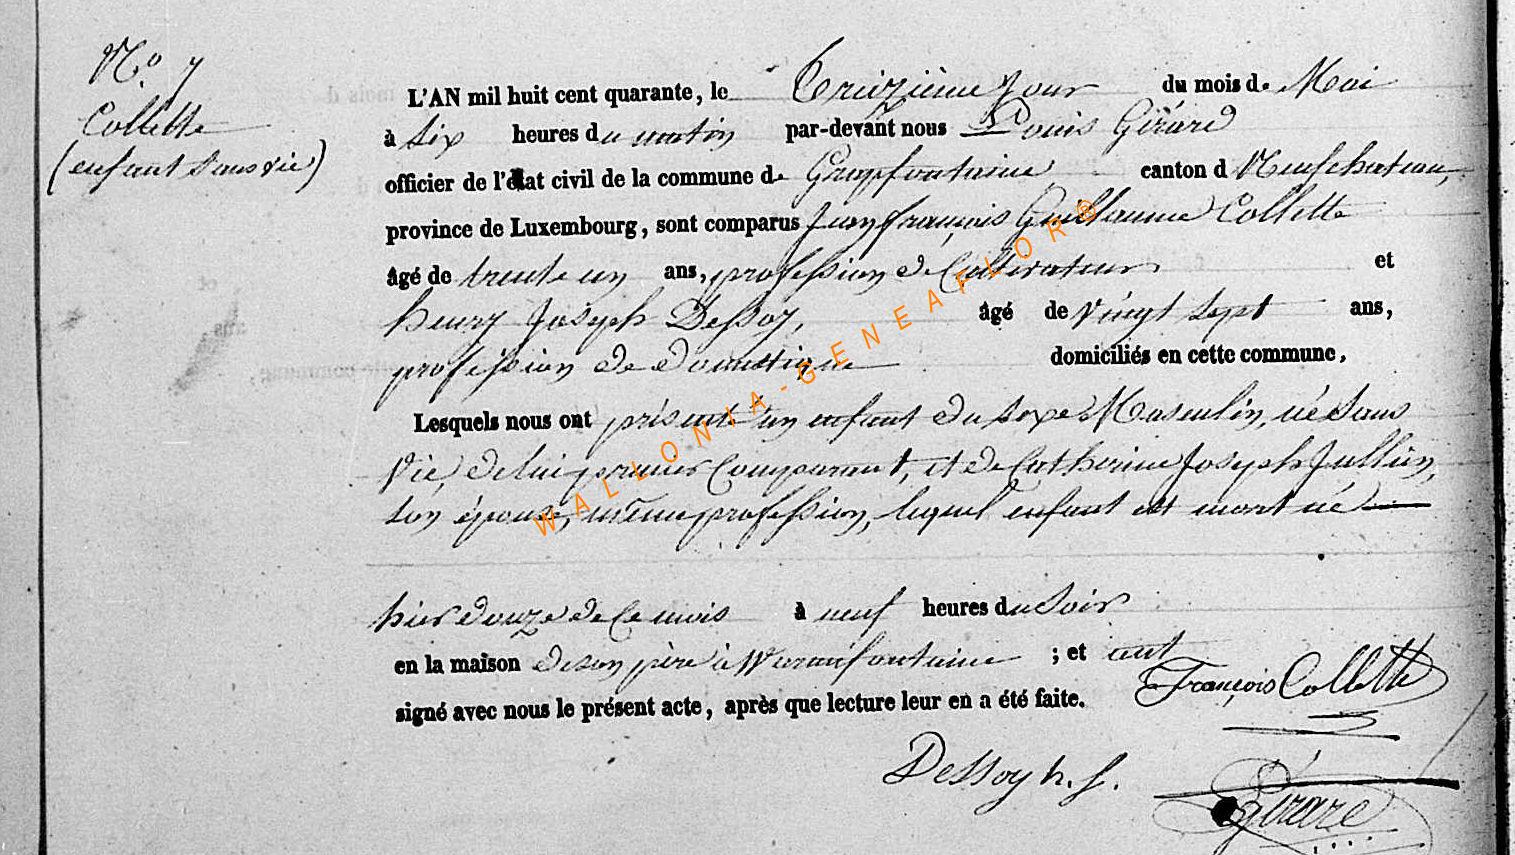 N.o 7
Collette
(enfant sans vie)
L'AN mil huit cent quarante, le Treizième jour du mois de Mai
à six heures du matin par-devant nous Louis Gérard
officier de l'état civil de la commune de Grapfontaine canton d Neufchateau,
province de Luxembourg, sont comparus Jean françois Guillaume Collette
âgé de trente un ans, profession de Cultivateur et
henry Joseph Dessoy, âgé de vingt sept ans,
profession de domestique domiciliés en cette commune,
Lesquels nous ont présenté un enfant du sexe Masculin, né sans
vie, de lui premier Comparant, et de Catherine Joseph Jullien,
son épouse, même profession, lequel enfant est mort né
hier douze de Ce mois à neuf heures du Soir
en la maison de son père à Warmifontaine ; et ont
signé avec nous le présent acte, après que lecture leur en a été faite.
François Collette
Dessoy h. J.
Gérard
WALLONIA-GENEAFLOR®